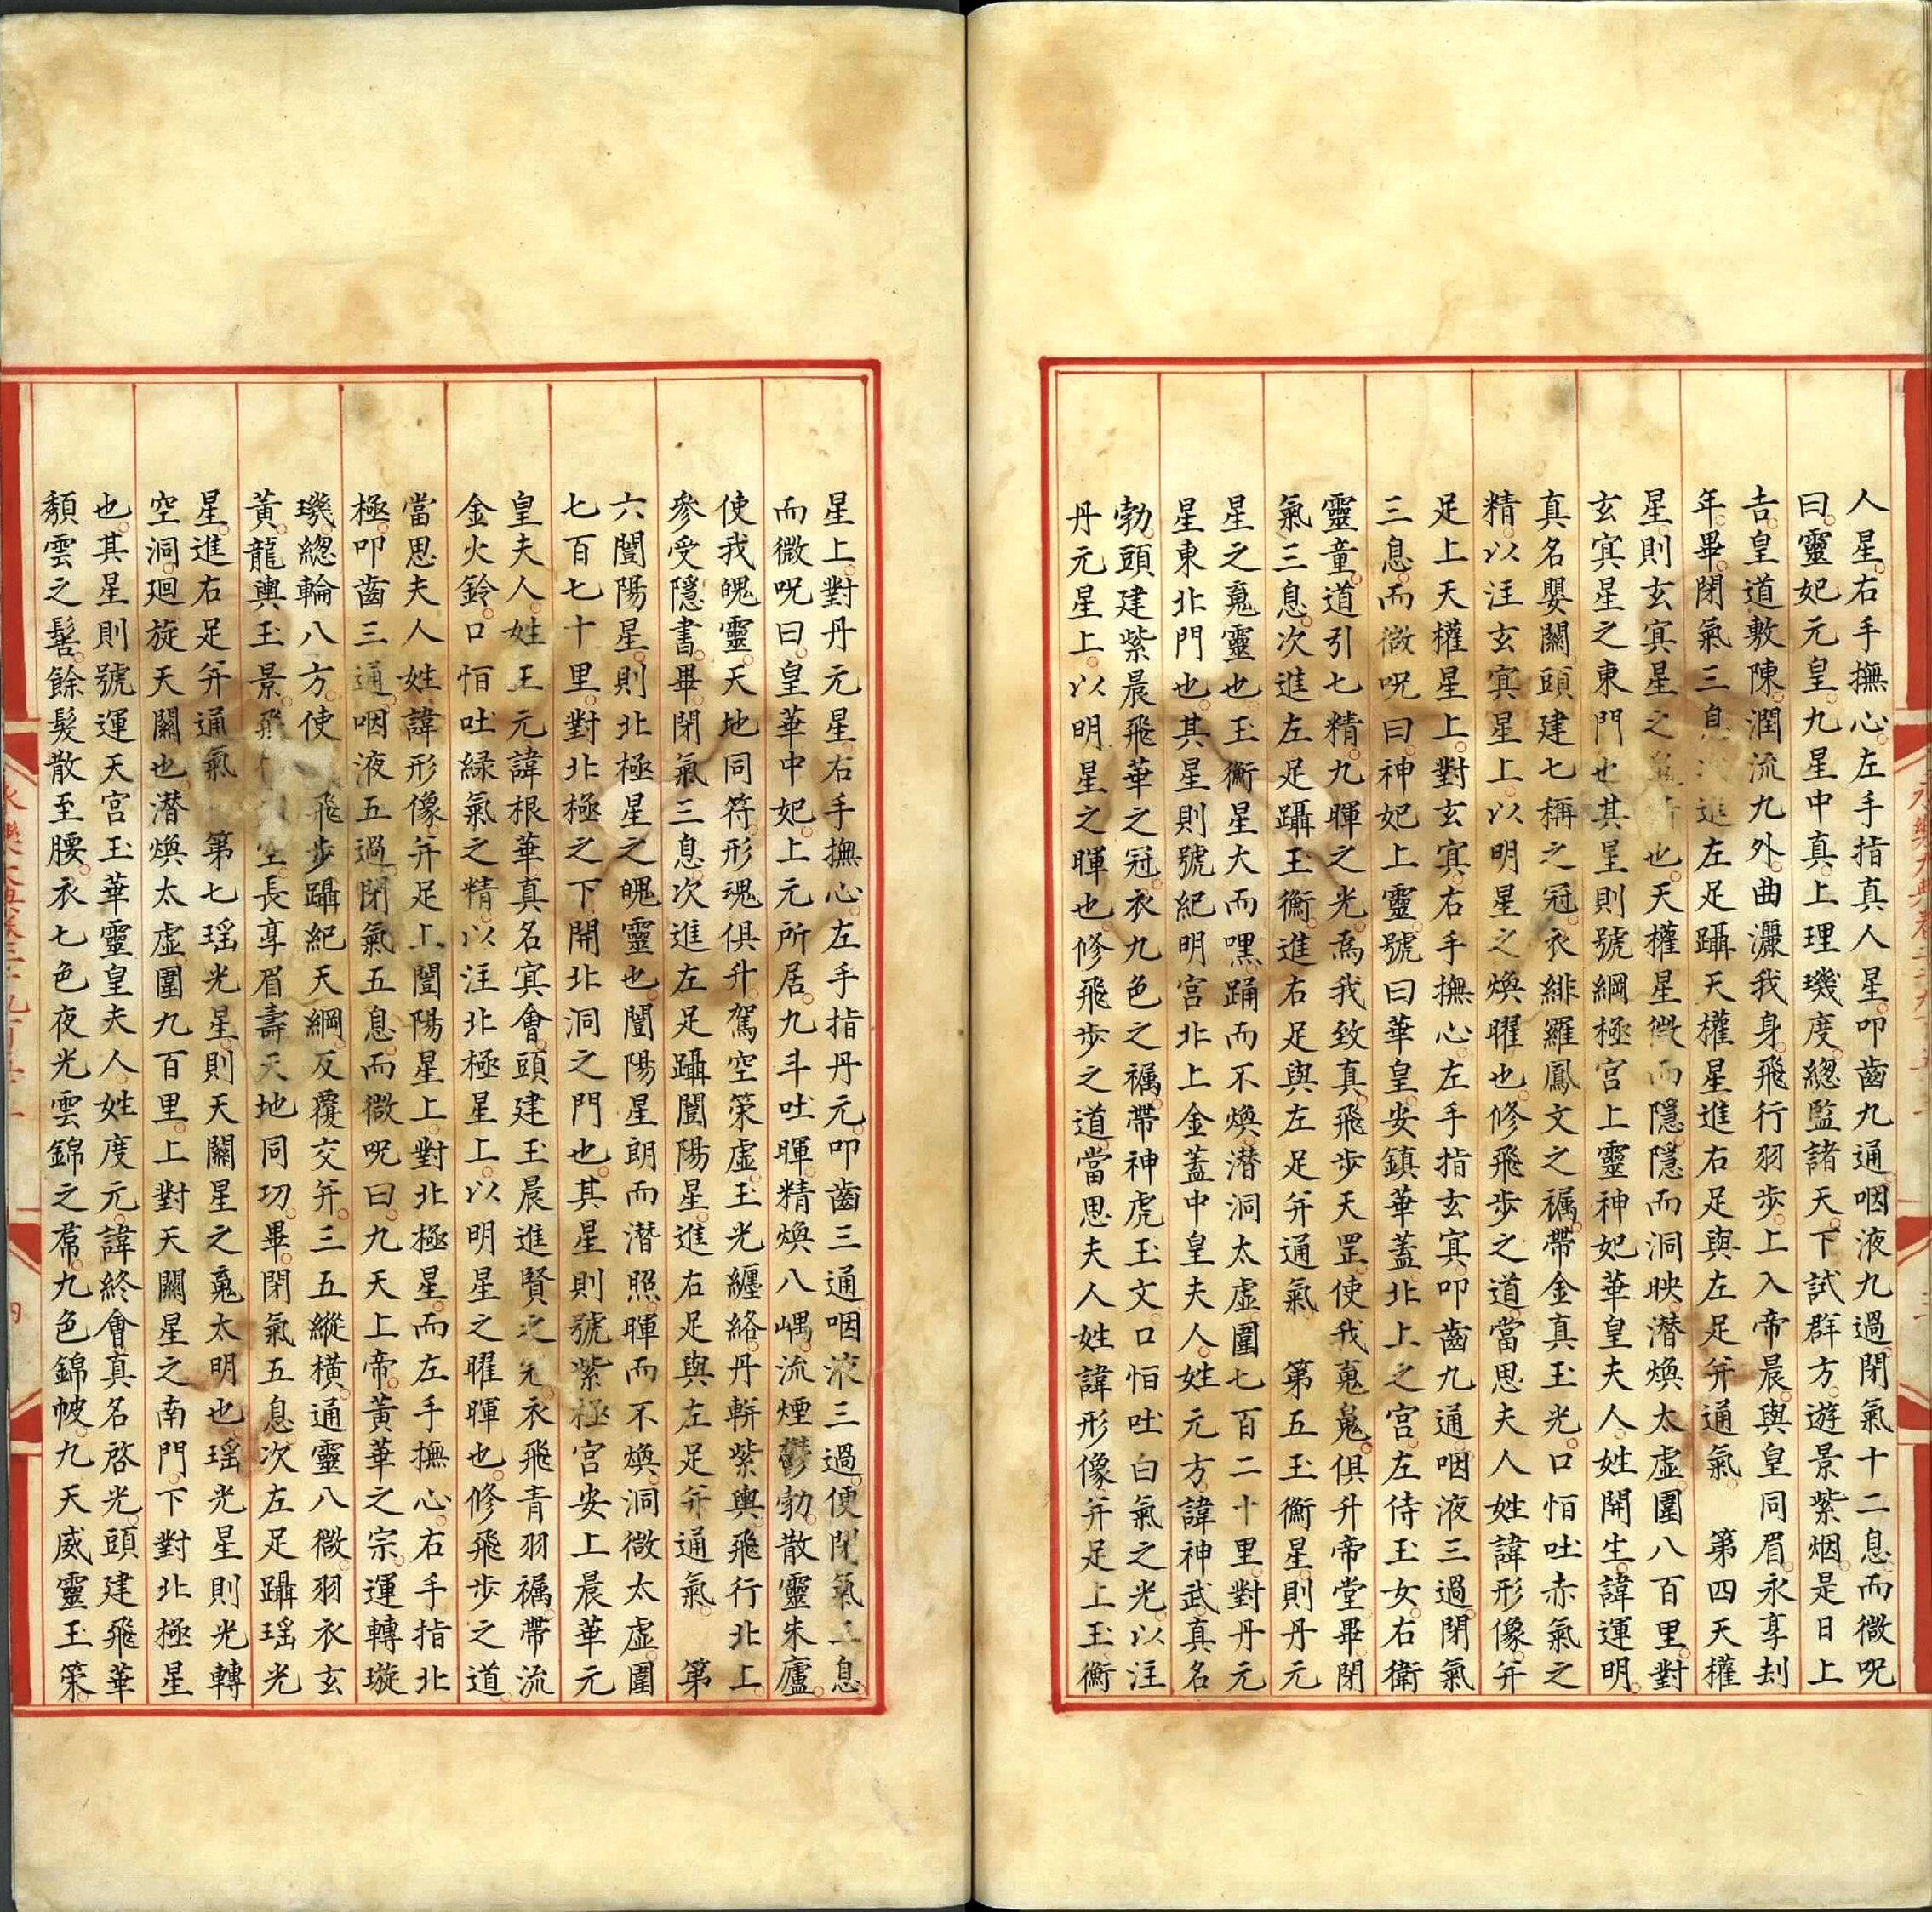 人星右手撫心左手指真人星叩齒九通咽液九過閉氣十二息而微呪
曰靈妃元皇九星中真上理璣度總監諸天下試群方遊景紫烟是日上
吉皇道敷陳潤流九外曲灑我身飛行羽步上入帝晨與皇同眉永享刦
年畢閉氣三息進左足躡天權星進右足與左足并通氣 第四天權
星則玄冥星之也天權星微而隱隱而洞映潜煥太虛圍八百里對
玄冥星之東門也其星則號綱極宮上靈神妃華皇夫人姓開生諱運明
真名嬰關頭建七稱之冠衣緋羅鳳文之襹帶金真玉光口恒吐赤氣之
精以注玄冥星上以明星之煥曜也修飛步之道當思夫人姓諱形像并
足上天權星上對玄冥右手撫心左手指玄冥叩齒九通咽液三過閉氣
三息而微呪曰神妃上靈號曰華皇安鎮華蓋北上之宮左侍玉女右衛
靈童道引七精九暉之光為我致真飛步天罡使我䰟䰟俱升帝堂畢閉
氣三息次進左足躡玉衡進右足與左足并通氣 第五玉衡星則丹元
星之䰟靈也玉衡星大而嘿踊而不煥潜洞太虛圍七百二十里對丹元
星東北門也其星則號紀明宮北上金蓋中皇夫人姓元方諱神武真名
勃頭建紫晨飛華之冠衣九色之襹帶神虎玉文口恒吐白氣之光以注
丹元星上以明星之暉也修飛步之道當思夫人姓諱形像并足上玉衡
星上對丹元星右手撫心左手指丹元叩齒三通咽液三過便閉氣三息
而微呪曰皇華中妃上元所居九斗吐暉精煥八嵎流煙鬱勃散靈朱廬
使我魄靈天地同符形魂俱升駕空策虛玉光纏絡丹軿紫輿飛行北上
參受隱書畢閉氣三息次進左足躡闓陽星進右足與左足并通氣 第
六闓陽星則北極星之魄靈也闓陽星朗而潜照暉而不煥洞微太虛圍
七百七十里對北極之下開北洞之門也其星則號紫極宮安上晨華元
皇夫人姓王元諱根華真名冥會頭建玉晨進賢之冠衣飛青羽襹帶流
金火鈴口恒吐緑氣之精以注北極星上以明星之曜暉也修飛步之道
當思夫人姓諱形像并足上闓陽星上對北極星而左手撫心右手指北
極叩齒三通咽液五過閉氣五息而微呪曰九天上帝黃華之宗運轉璇
璣總輪八方使飛步躡紀天綱反覆交并三五縱橫通靈八微羽衣玄
黃龍輿玉景飛空長享眉壽天地同功畢閉氣五息次左足躡瑤光
星進右足并通氣 第七瑤光星則天關星之䰟太明也瑤光星則光轉
空洞廻旋天關也潜煥太虛圍九百里上對天關星之南門下對北極星
也其星則號運天宮玉華靈皇夫人姓度元諱終會真名啓光頭建飛華
頹雲之髻餘髮散至腰衣七色夜光雲錦之帬九色錦帔九天威靈玉策